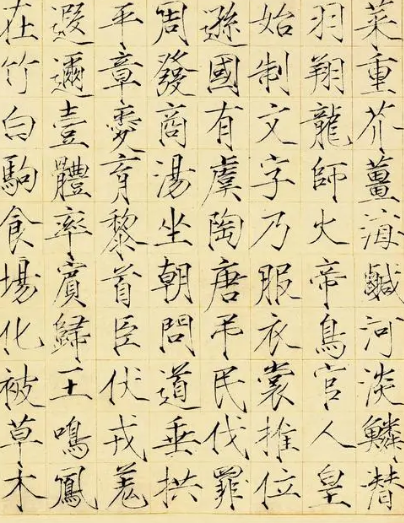 菜重芥薑海鹹河淡鱗潛
羽翔龍師火帝鳥官人皇
始制文字乃服衣裳推位
遜國有虞陶唐弔民伐罪
周發商湯坐朝問道垂拱
平章愛育黎首臣伏戎羌
遐邇壹體率賓歸王鳴鳳
在竹白駒食場化被草木